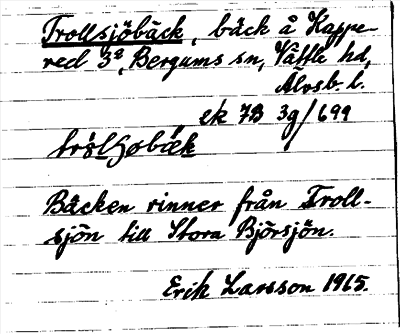 Trollsjöbäck, bäck å Kappe-
red 3ª, Bergums sn, Vättle hd,
Älvsb. l.
ek 7B 3g/699
Bäcken rinner från Troll-
sjön till Stora Björsjön.
Erik Larsson 1965.